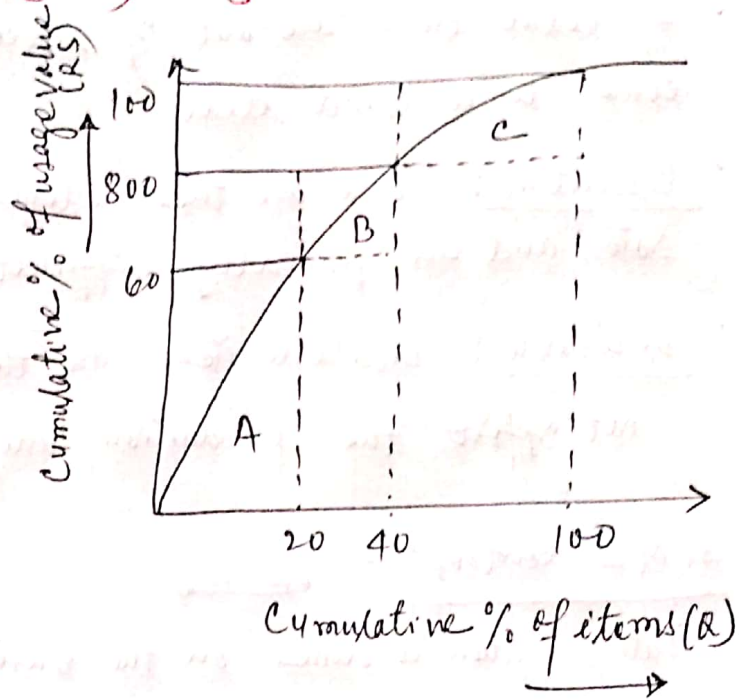 Cumulative % of usage value
(RS)
100
800
60
C
B
A
20 40 100
Cumulative % of items (Q)